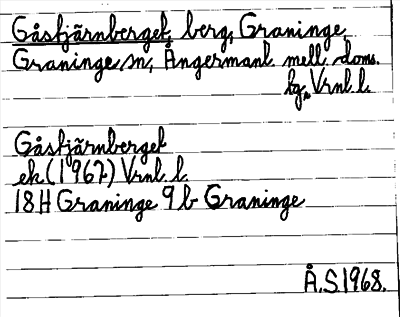 Gåstjärnberget, berg, Graninge
Graninge sn, Ångermanl. mell. doms.
hg. Vrnl. l.
Gåstjärnberget
ek (1967) Vrnl. l.
18H Graninge 9b Graninge
Å.S. 1968.